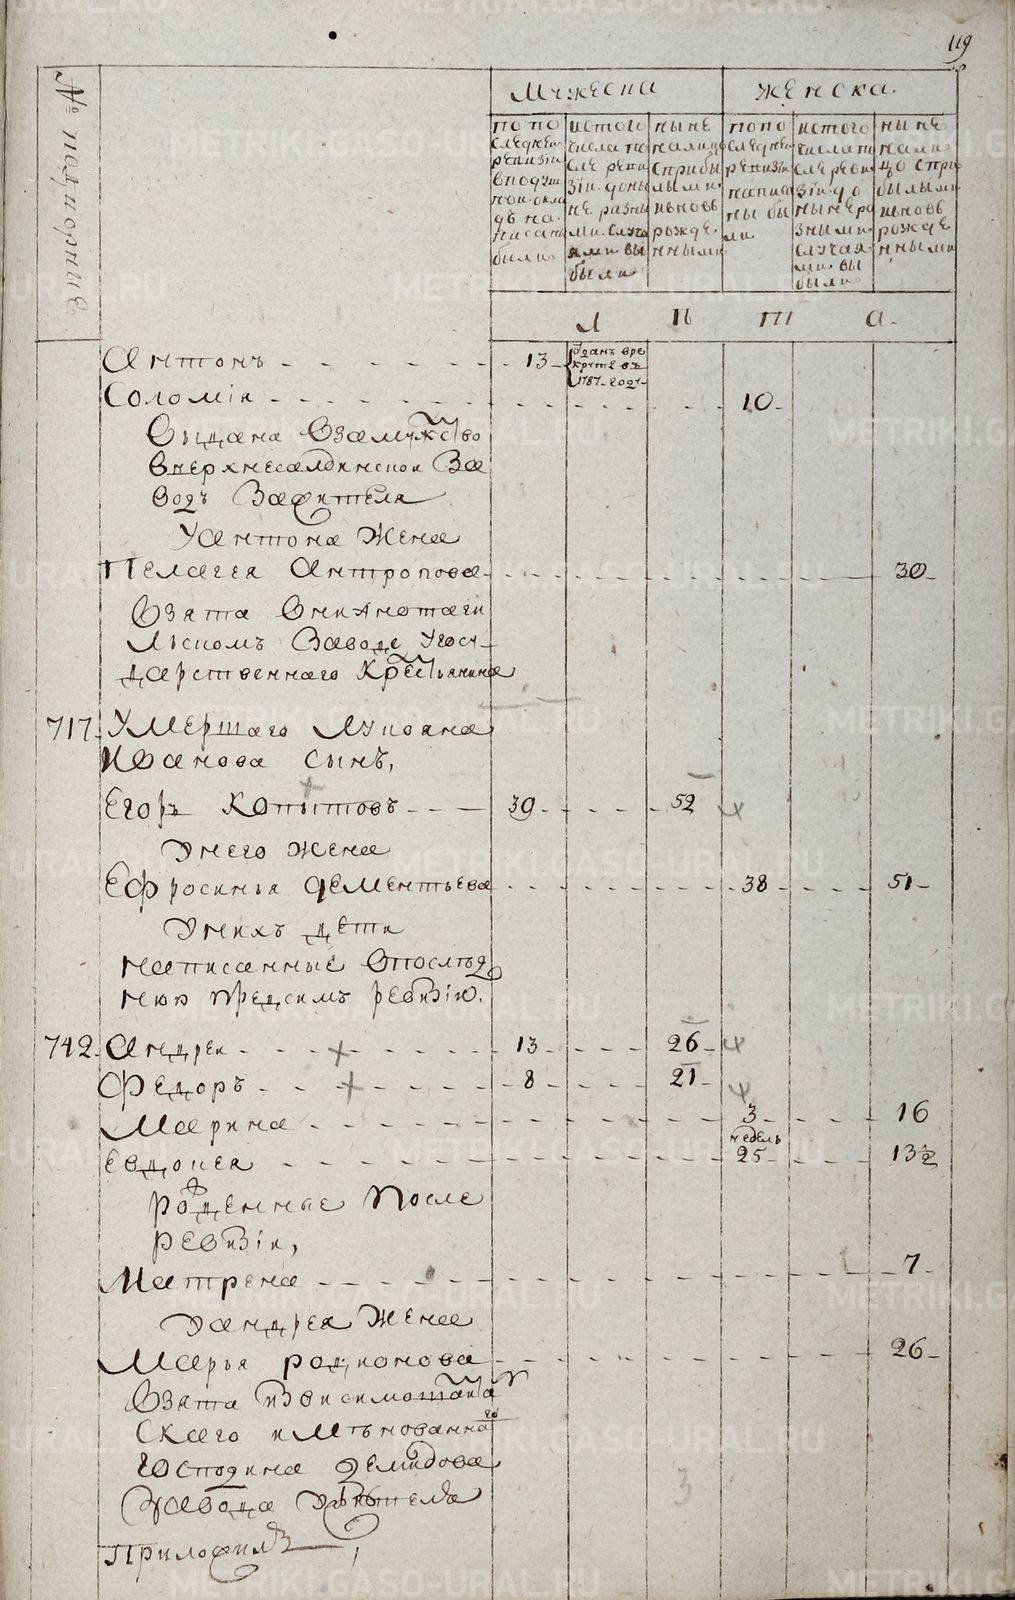 119
№ подворные
Мужеска
женска.
по последней ревизии в подушной оклад написаны были
из того числа после ревизии до ныне разными случаями выбыли
ныне на лицо с прибылыми и вновь рожденными
по последней ревизии написаны были
из того числа после ревизии до ныне разными случаями выбыли
ныне на лицо с прибылыми и вновь рожденными
Л ѣ т а.
Антонъ 13 отданъ в рекруты въ 1787 году
Соломія 10
Выдана взамужство
в нерхнесалдинской за
водъ за жителя
У антона жена
Пелагея Антропова 30
Взята в нижнотаги
льскомъ заводе у госу
дарственнаго крестьянина
717 Умершаго Лукояна
Иванова сынъ,
Егоръ Копытовъ 39 52
У него жена
Ефросинья дементьева 38 51
У них дети
написанные в последнюю
пред сим ревизию.
742 Андрей 13 26
Федоръ 8 21
Марина 3 16
недель
Евдокея 25 13½
Рожденные после
ревизіи,
Матрена 7
У андрея жена
Марья родионова 26
Взята в висимошайтан
скаго именованнаго
господина демидова
завода у жителя
METRIKI.GASO-URAL.RU